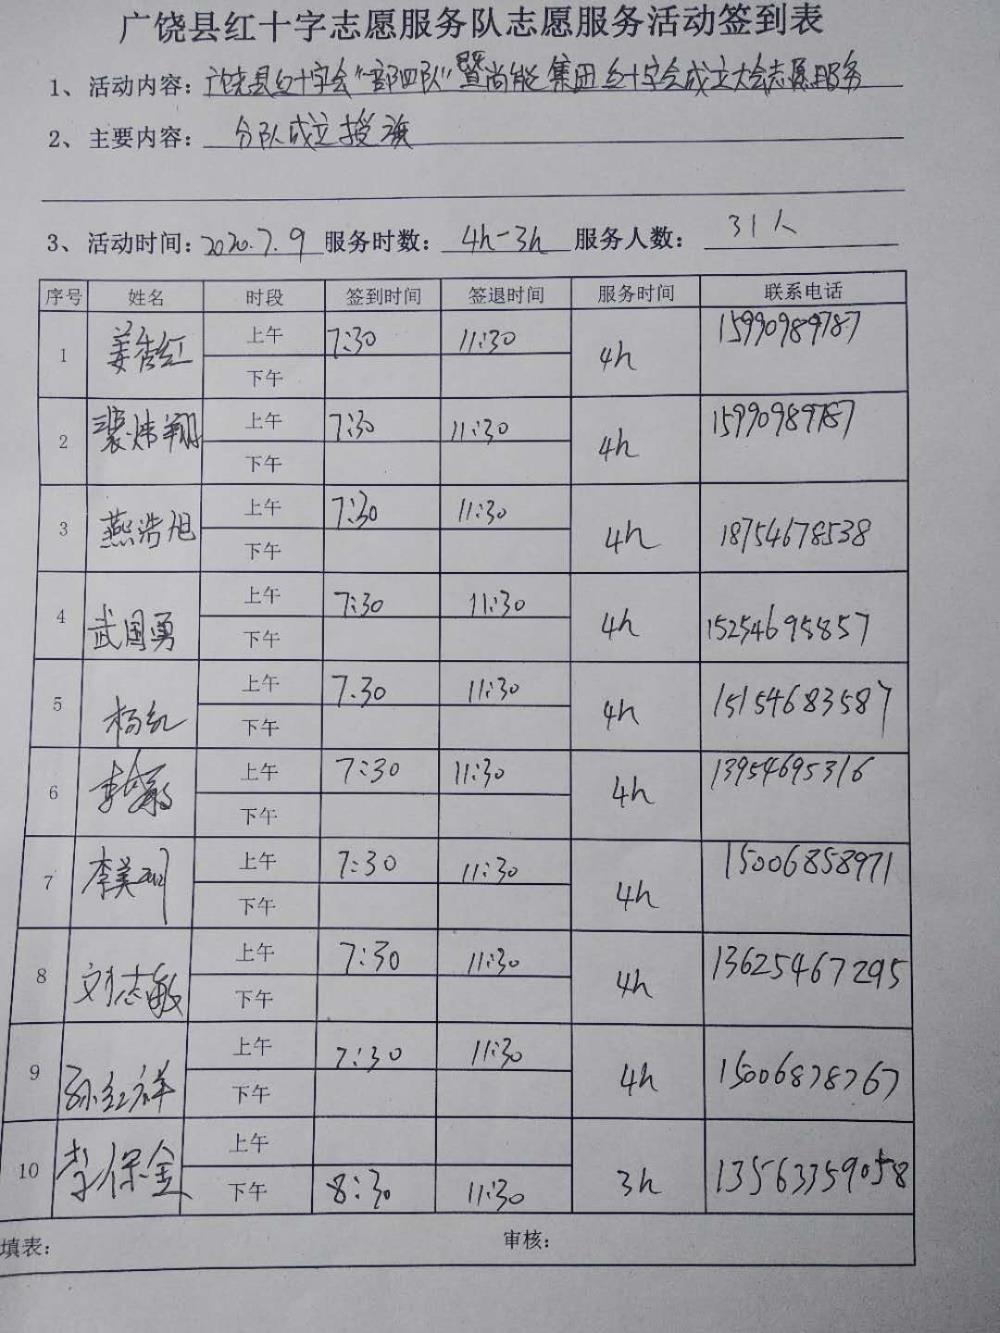 广饶县红十字志愿服务队志愿服务活动签到表
1、活动内容：广饶县红十字会“一部四队”暨尚能集团红十字会成立大会志愿服务
2、主要内容：分队成立授旗
3、活动时间：2020.7.9 服务时数：4h-3h 服务人数：31人
序号 姓名 时段 签到时间 签退时间 服务时间 联系电话
1 姜秀红 上午 7:30 11:30 4h 15990989787
下午
2 裴炜翔 上午 7:30 11:30 4h 15990989787
下午
3 燕浩旭 上午 7:30 11:30 4h 18754678538
下午
4 武国勇 上午 7:30 11:30 4h 15254695857
下午
5 杨红 上午 7.30 11:30 4h 15154683587
下午
6 上午 7:30 11:30 4h 13954695316
下午
7 李美 上午 7:30 11:30 4h 15006858971
下午
8 刘志敏 上午 7:30 11:30 4h 13625467295
下午
9 孙红祥 上午 7:30 11:30 4h 15006878767
下午
10 李保金 上午
下午 8:30 11:30 3h 13563359058
填表： 审核：